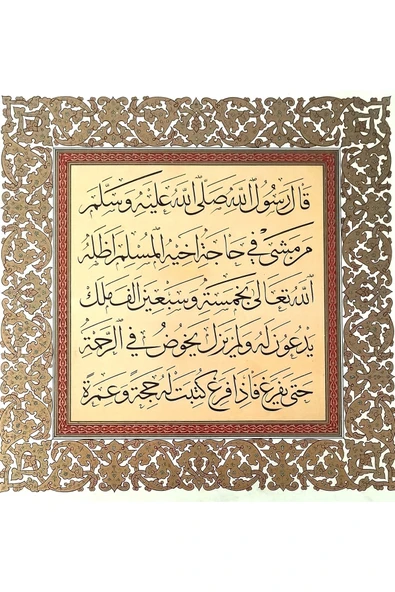 قال رسول الله صلى الله عليه وسلم
من مشى في حاجة اخيه المسلم اظله
الله تعالى بخمسة وسبعين الف ملك
يدعون له ولم يزل يخوض في الرحمة
حتى يفرغ فاذا فرغ كتبت له حجة وعمرة